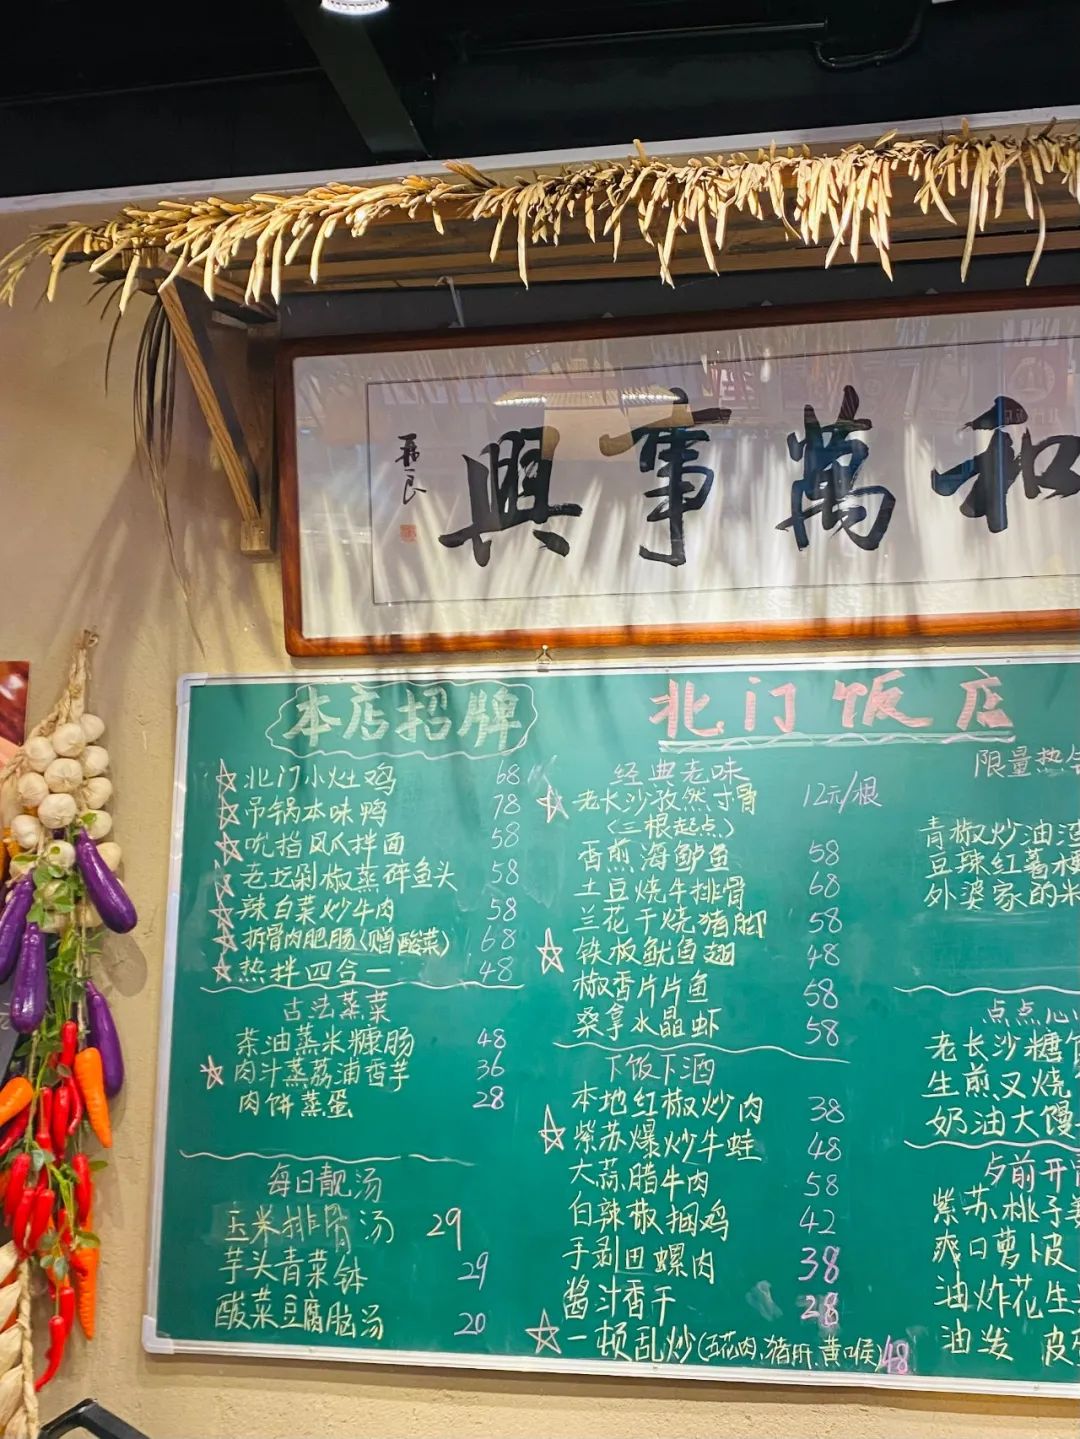 和萬事興
本店招牌
北门小灶鸡 68
吊锅本味鸭 78
吮指凤爪拌面 58
老坛剁椒蒸碎鱼头 58
辣白菜炒牛肉 58
拆骨肉肥肠(赠酸菜) 68
热拌四合一 48
古法蒸菜
茶油蒸米糠肠 48
肉汁蒸荔浦香芋 36
肉饼蒸蛋 28
每日靓汤
玉米排骨汤 29
芋头青菜钵 29
酸菜豆腐脑汤 20
北门饭店
经典老味
老长沙孜然寸骨 12元/根
(三根起点)
香煎海鲈鱼 58
土豆烧牛排骨 68
兰花干烧猪脚 58
铁板鱿鱼翅 48
椒香片片鱼 58
桑拿水晶虾 58
下饭下酒
本地红椒炒肉 38
紫苏爆炒牛蛙 48
大蒜腊牛肉 58
白辣椒捆鸡 42
手剥田螺肉 38
酱汁香干 28
一顿乱炒(五花肉、猪肝、黄喉) 48
限量热
青椒炒油渣
豆辣红薯
外婆家的米
点点心
老长沙糖
生煎叉烧
奶油大馒
夕前开胃
紫苏桃子姜
爽口萝卜皮
油炸花生
油泼 皮